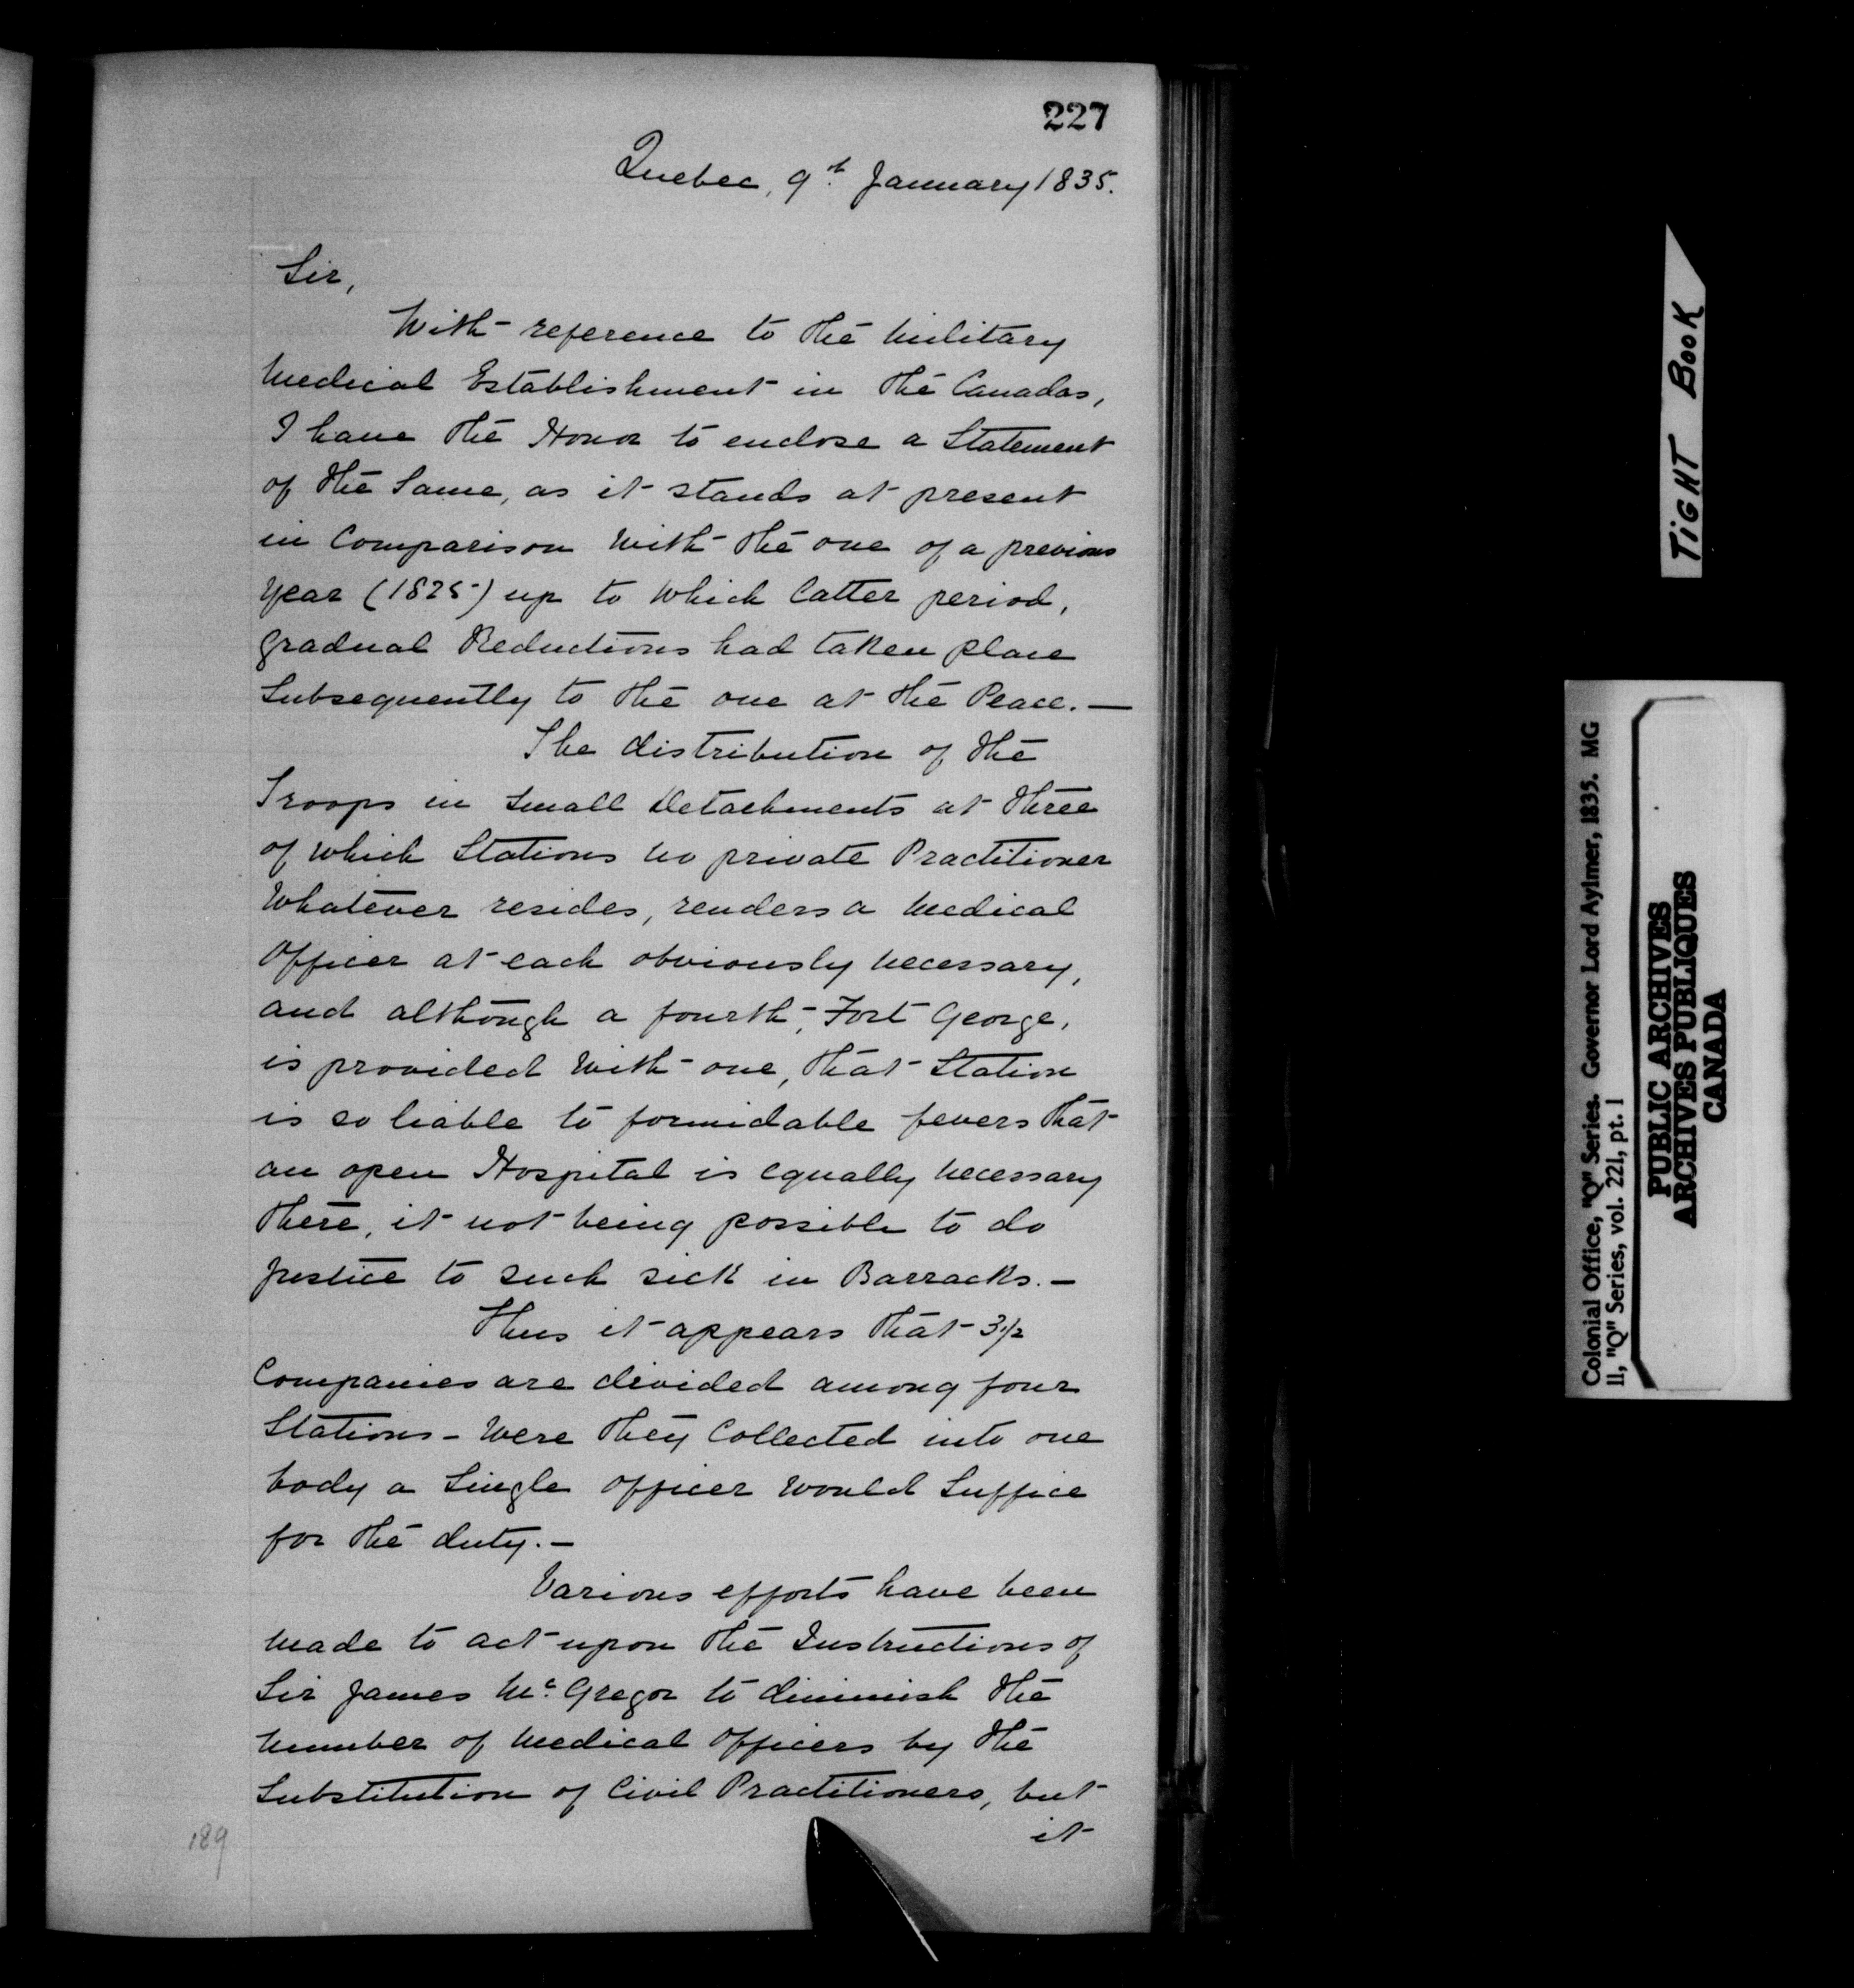 227
Quebec, 9th January 1835.
Sir,
With reference to the Military
Medical Establishment in the Canadas,
I have the Honor to enclose a Statement
of the Same, as it stands at present
in Comparison with the one of a previous
year (1825) up to which latter period,
gradual Reductions had taken place
Subsequently to the one at the Peace. —
The distribution of the
Troops in small Detachments at three
of which Stations no private Practitioner
whatever resides, renders a Medical
Officer at each obviously necessary,
and although a fourth, Fort George,
is provided with one, that Station
is so liable to formidable fevers that
an open Hospital is equally necessary
there, it not being possible to do
justice to such sick in Barracks. —
Thus it appears that 3 1/2
Companies are divided among four
Stations - Were they Collected into one
body a Single Officer would Suffice
for the duty. —
Various efforts have been
made to act upon the Instructions of
Sir James Mc Gregor to diminish the
number of Medical Officers by the
Substitution of Civil Practitioners, but
it
189
TIGHT BOOK
Colonial Office, "Q" Series. Governor Lord Aylmer, 1835. MG
11, "Q" Series, vol. 221, pt. 1
PUBLIC ARCHIVES
ARCHIVES PUBLIQUES
CANADA